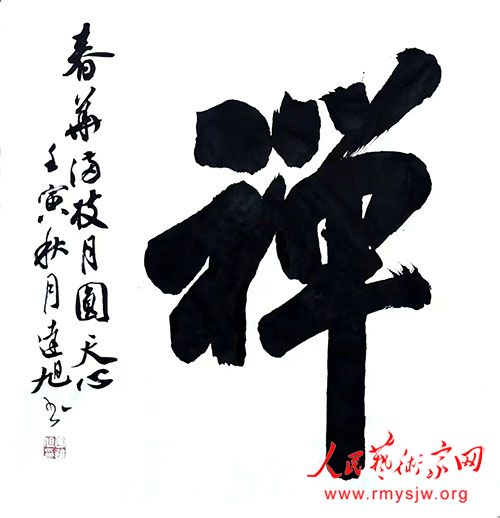 禅
春华满枝月圆天心
壬寅秋月达旭书
人民艺术家网
www.rmysjw.org